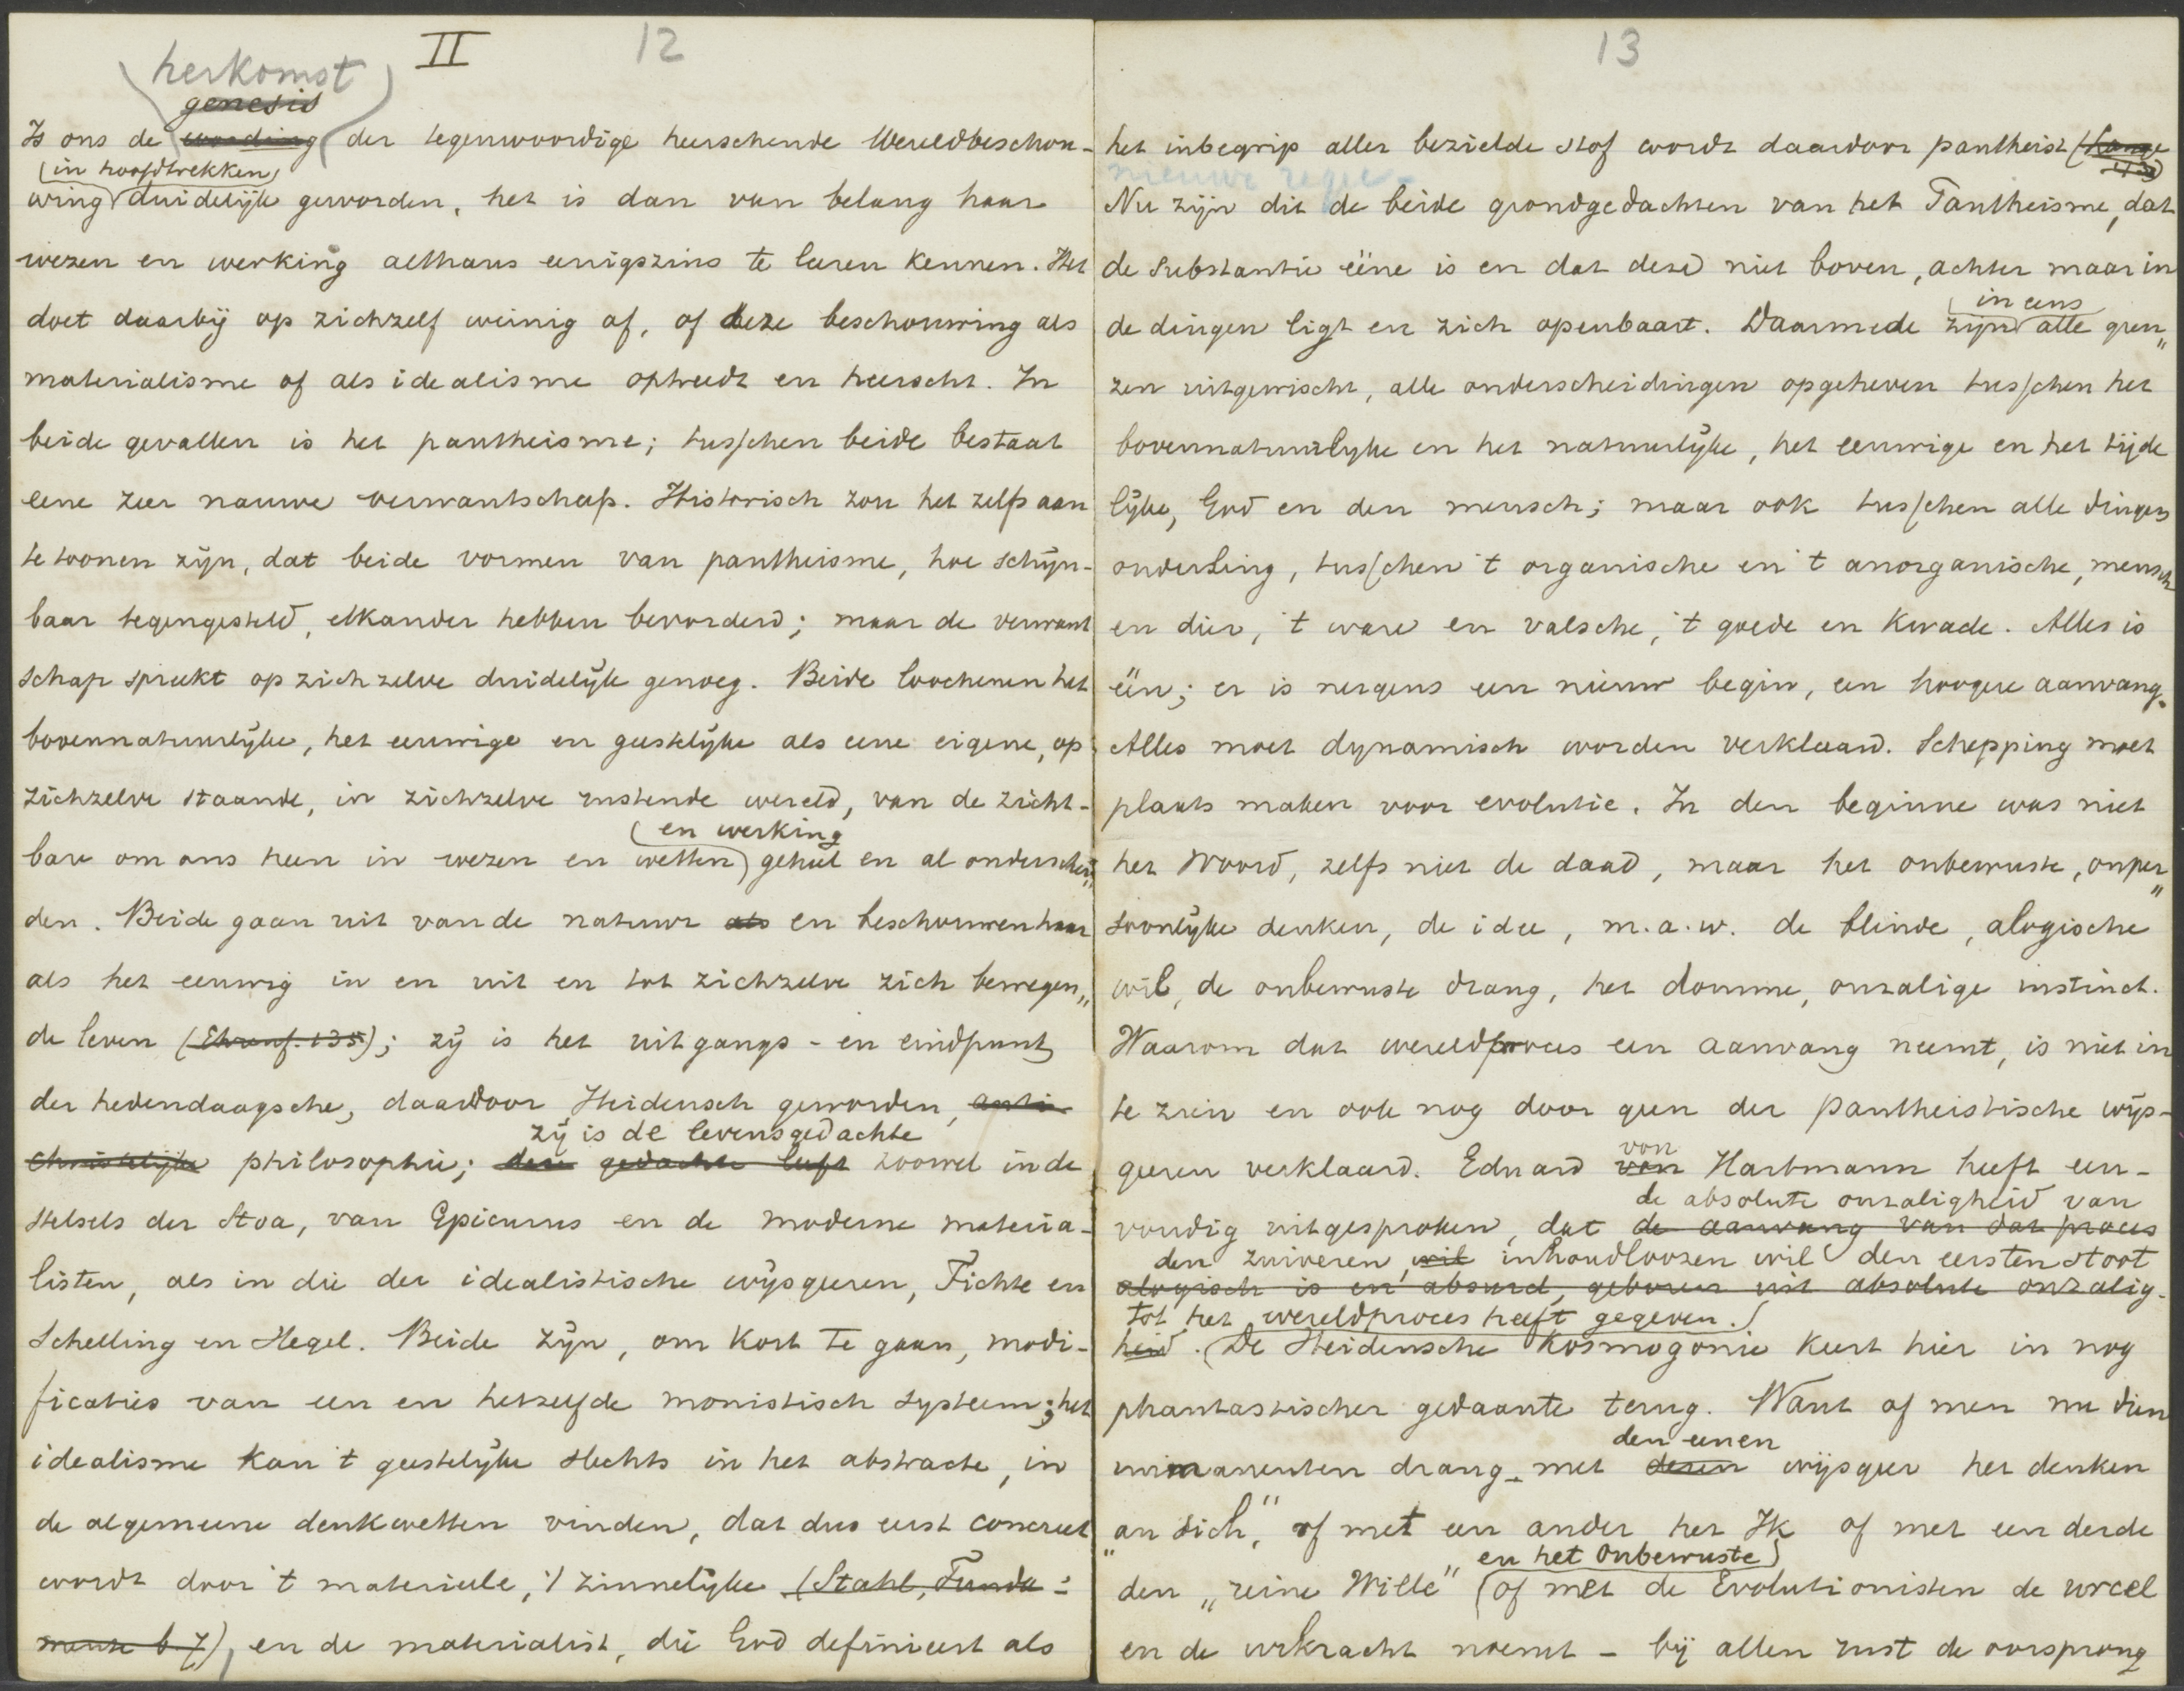 II 12
herkomst
genesis
Is ons de wording der tegenwoordige heerschende Wereldbeschou-
in hoofdtrekken
wing duidelijk geworden, het is dan van belang haar
wezen en werking althans eenigszins te leeren kennen. Het
doet daarbij op zichzelf weinig af, of deze beschouwing als
materialisme of als idealisme optreedt en heerscht. In
beide gevallen is het pantheisme; tusschen beide bestaat
eene zeer nauwe verwantschap. Historisch zou het zelfs aan
te toonen zijn, dat beide vormen van pantheisme, hoe schijn-
baar tegengesteld, elkander hebben bevorderd; maar de verwant
schap spreekt op zich zelve duidelijk genoeg. Beide loochenen het
bovennatuurlijke, het eeuwige en geestelijke als eene eigene, op
zichzelve staande, in zichzelve rustende wereld, van de zicht-
en werking
bare om ons heen in wezen en wetten geheel en al onderschei„
den. Beide gaan uit van de natuur als en beschouwen haar
als het eeuwig in en uit en tot zichzelve zich bewegen„
de leven (Ehrenf. 135); zij is het uitgangs- en eindpunt
der hedendaagsche, daardoor Heidensch geworden, anti-
zij is de levensgedachte
christelijke philosophie; deze gedachte leeft zoowel in de
stelsels der Stoa, van Epicurus en de moderne materia-
listen, als in die der idealistische wijsgeeren, Fichte en
Schelling en Hegel. Beide zijn, om kort te gaan, modi-
ficaties van een en hetzelfde monistisch systeem; het
idealisme kan 't geestelijke slechts in het abstracte, in
de algemeene denkwetten vinden, dat dus eerst concreet
wordt door 't materieele, 't zinnelijke (Stahl, Funda-
mente b 7), en de materialist, die God definieert als
13
het inbegrip aller bezielde stof wordt daardoor pantheist
nieuwe regel-
Nu zijn dit de beide grondgedachten van het Pantheisme, dat
de substantie ëéne is en dat deze niet boven, achter maar in
in eens
de dingen ligt en zich openbaart. Daarmede zijn alle gren„
zen uitgewischt, alle onderscheidingen opgeheven tusschen het
bovennatuurlyke en het natuurlijke, het eeuwige en het tijde
lijke, God en den mensch; maar ook tusschen alle dingen
onderling, tusschen 't organische en 't anorganische, mensch
en dier, 't ware en valsche, 't goede en kwade. Alles is
ëén; er is nergens een nieuw begin, een hoogere aanvang.
Alles moet dynamisch worden verklaard. Schepping moet
plaats maken voor evolutie. In den beginne was niet
het Woord, zelfs niet de daad, maar het onbewuste, onper„
soonlijke denken, de idee, m.a.w. de blinde, alogische
wil, de onbewuste drang, het domme, onzalige instinct.
Waarom dat wereldproces een aanvang neemt, is niet in
te zien en ook nog door geen der pantheistische wijs-
von
geeren verklaard. Eduard von Hartmann heeft een-
de absolute onzaligheid van
voudig uitgesproken, dat de aanvang van dat proces
den zuiveren, wil inhoudloozen wil den eersten stoot
alogisch is en absurd, geboren uit absolute onzalig-
tot het wereldproces heeft gegeven.
heid. De Heidensche Kosmogonie keert hier in nog
phantastischer gedaante terug. Want of men nu dien
den eenen
immanenten drang met dezen wijsgeer het denken
„an sich," of met een ander het Ik of met een derde
en het Onbewuste
den „reine Wille" of met de Evolutionisten de urcel
en de urkracht noemt - bij allen rust de oorsprong